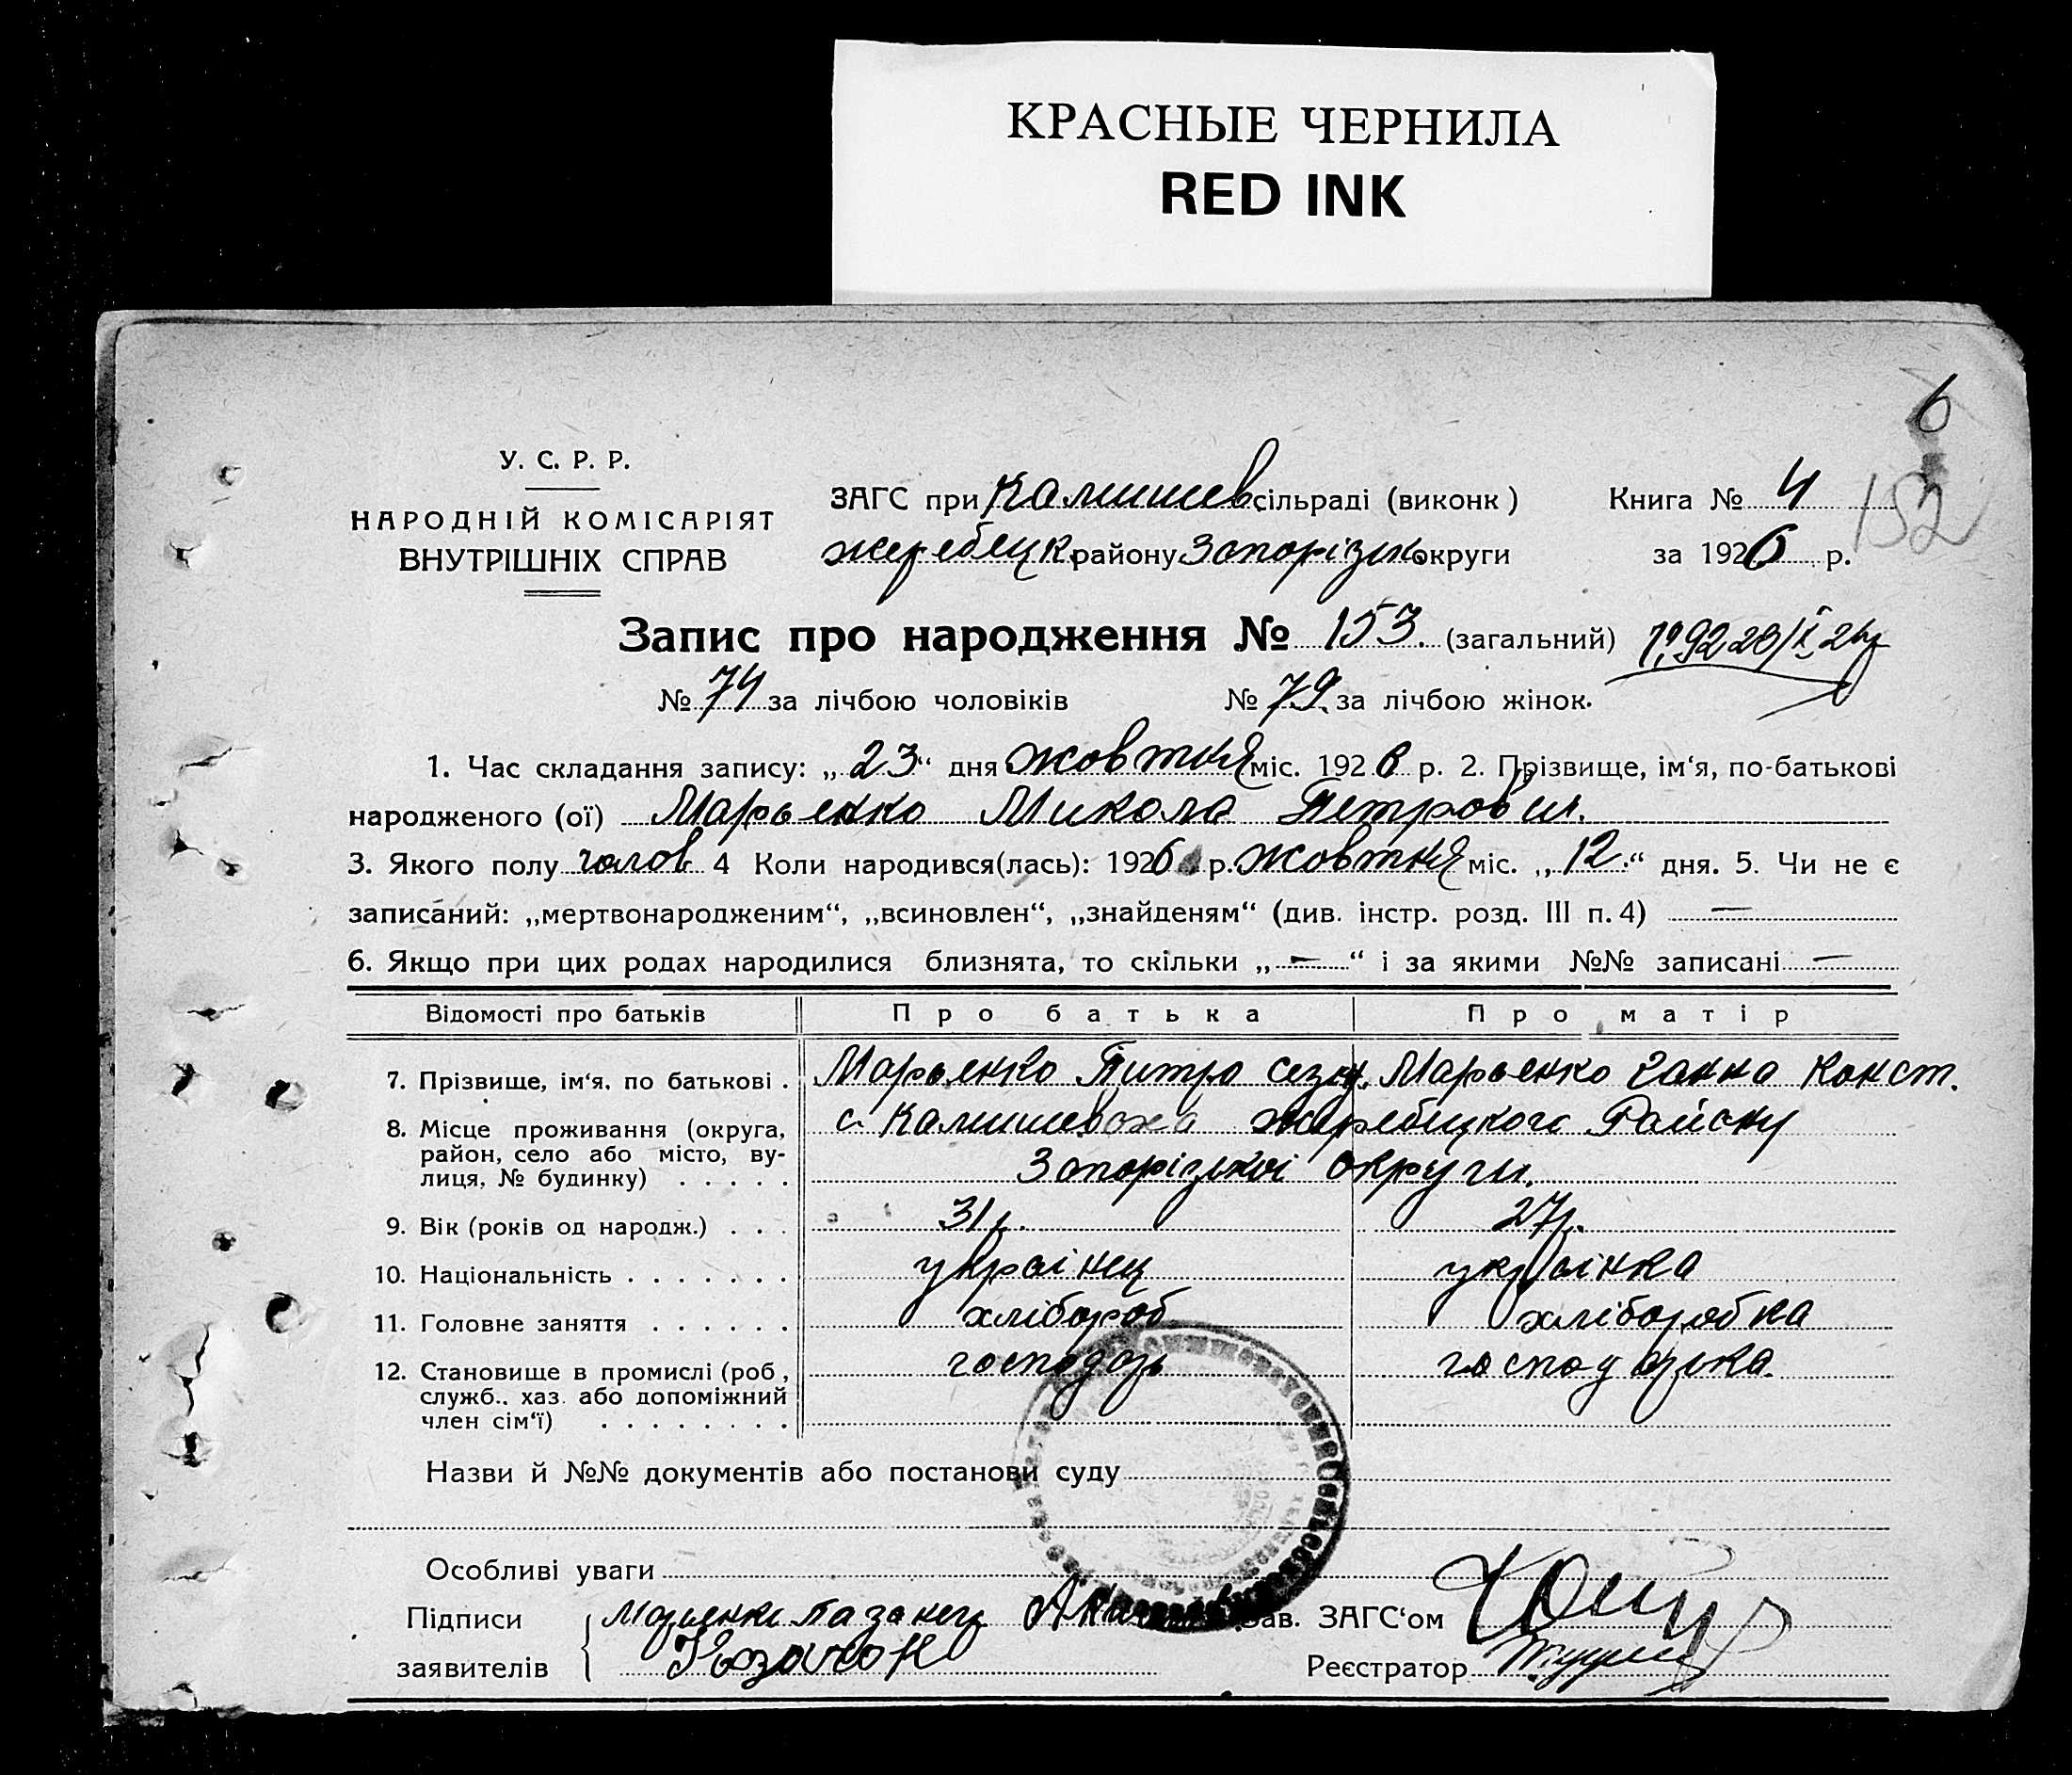 КРАСНЫЕ ЧЕРНИЛА
RED INK
6
У. С. Р. Р.
НАРОДНІЙ КОМІСАРІЯТ
ВНУТРІШНІХ СПРАВ
ЗАГС при Камишев сільраді (виконк)
Книга № 4
152
жеребецк району Запорізьк округи
за 1926 р.
Запис про народження № 153. (загальний)
№ 74 за лічбою чоловіків № 79 за лічбою жінок.
1. Час складання запису: „23“ дня жовтня міс. 1926 р. 2. Прізвище, ім‘я, по-батькові
народженого (ої) Марьенко Микола Петрович.
3. Якого полу чолов 4 Коли народився(лась): 1926 р. жовтня міс. „12.“ дня. 5. Чи не є
записаний: „мертвонародженим“, „всиновлен“, „знайденям“ (див. інстр. розд. III п. 4) —
6. Якщо при цих родах народилися близнята, то скільки „—“ і за якими №№ записані —
Відомості про батьків Про батька Про матір
7. Прізвище, ім‘я, по батькові . Марьенко Питро Марьенко Ганна Конст.
8. Місце проживання (округа,
район, село або місто, ву-
лиця, № будинку) . . . . .
с. Камишеваха Жеребецкого Району
Запорізької округи.
9. Вік (років од народж.) . . . 31 р. 27 р.
10. Національність . . . . . . . українец українка
11. Головне заняття . . . . . . хлібороб хліборобка
12. Становище в промислі (роб,
служб., хаз. або допоміжний
член сім‘ї) . . . . . . . .
господарь господарька.
Назви й №№ документів або постанови суду
Особливі уваги
Підписи
заявителів
Марьенко
Козачок
Зав. ЗАГС‘ом
Реєстратор